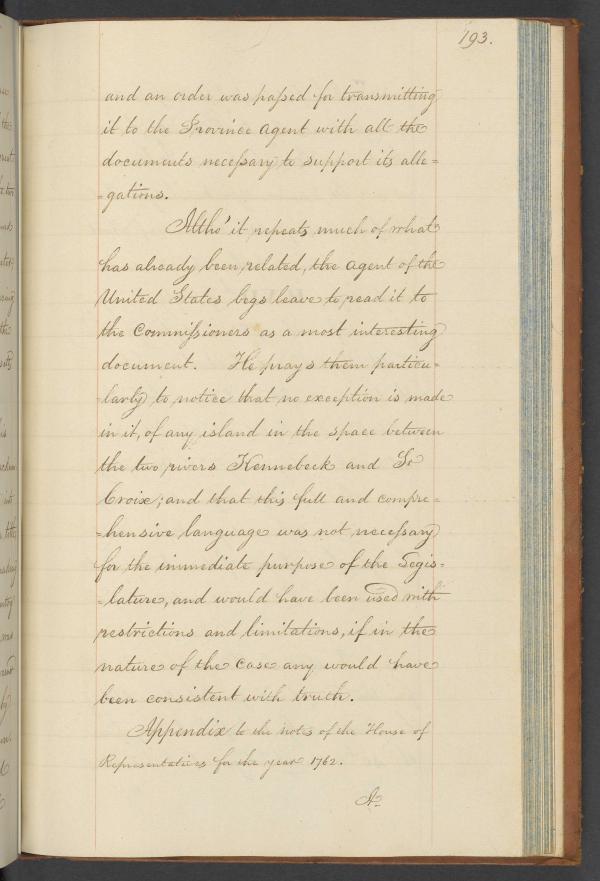 193.
and an order was paſsed for transmitting
it to the Province Agent with all the
documents neceſsary to support its alle=
=gations.
Altho' it repeats much of what
has already been related, the Agent of the
United States begs leave to read it to
the Commiſsioners as a most interesting
document. He prays them particu=
=larly to notice that no exception is made
in it, of any island in the space between
the two rivers Kennebeck and St
Croix; and that this full and compre=
=hensive language was not neceſsary
for the immediate purpose of the Legis=
=lature, and would have been used with
restrictions and limitations, if in the
nature of the case any would have
been consistent with truth.
Appendix to the notes of the House of
Representatives for the year 1762.